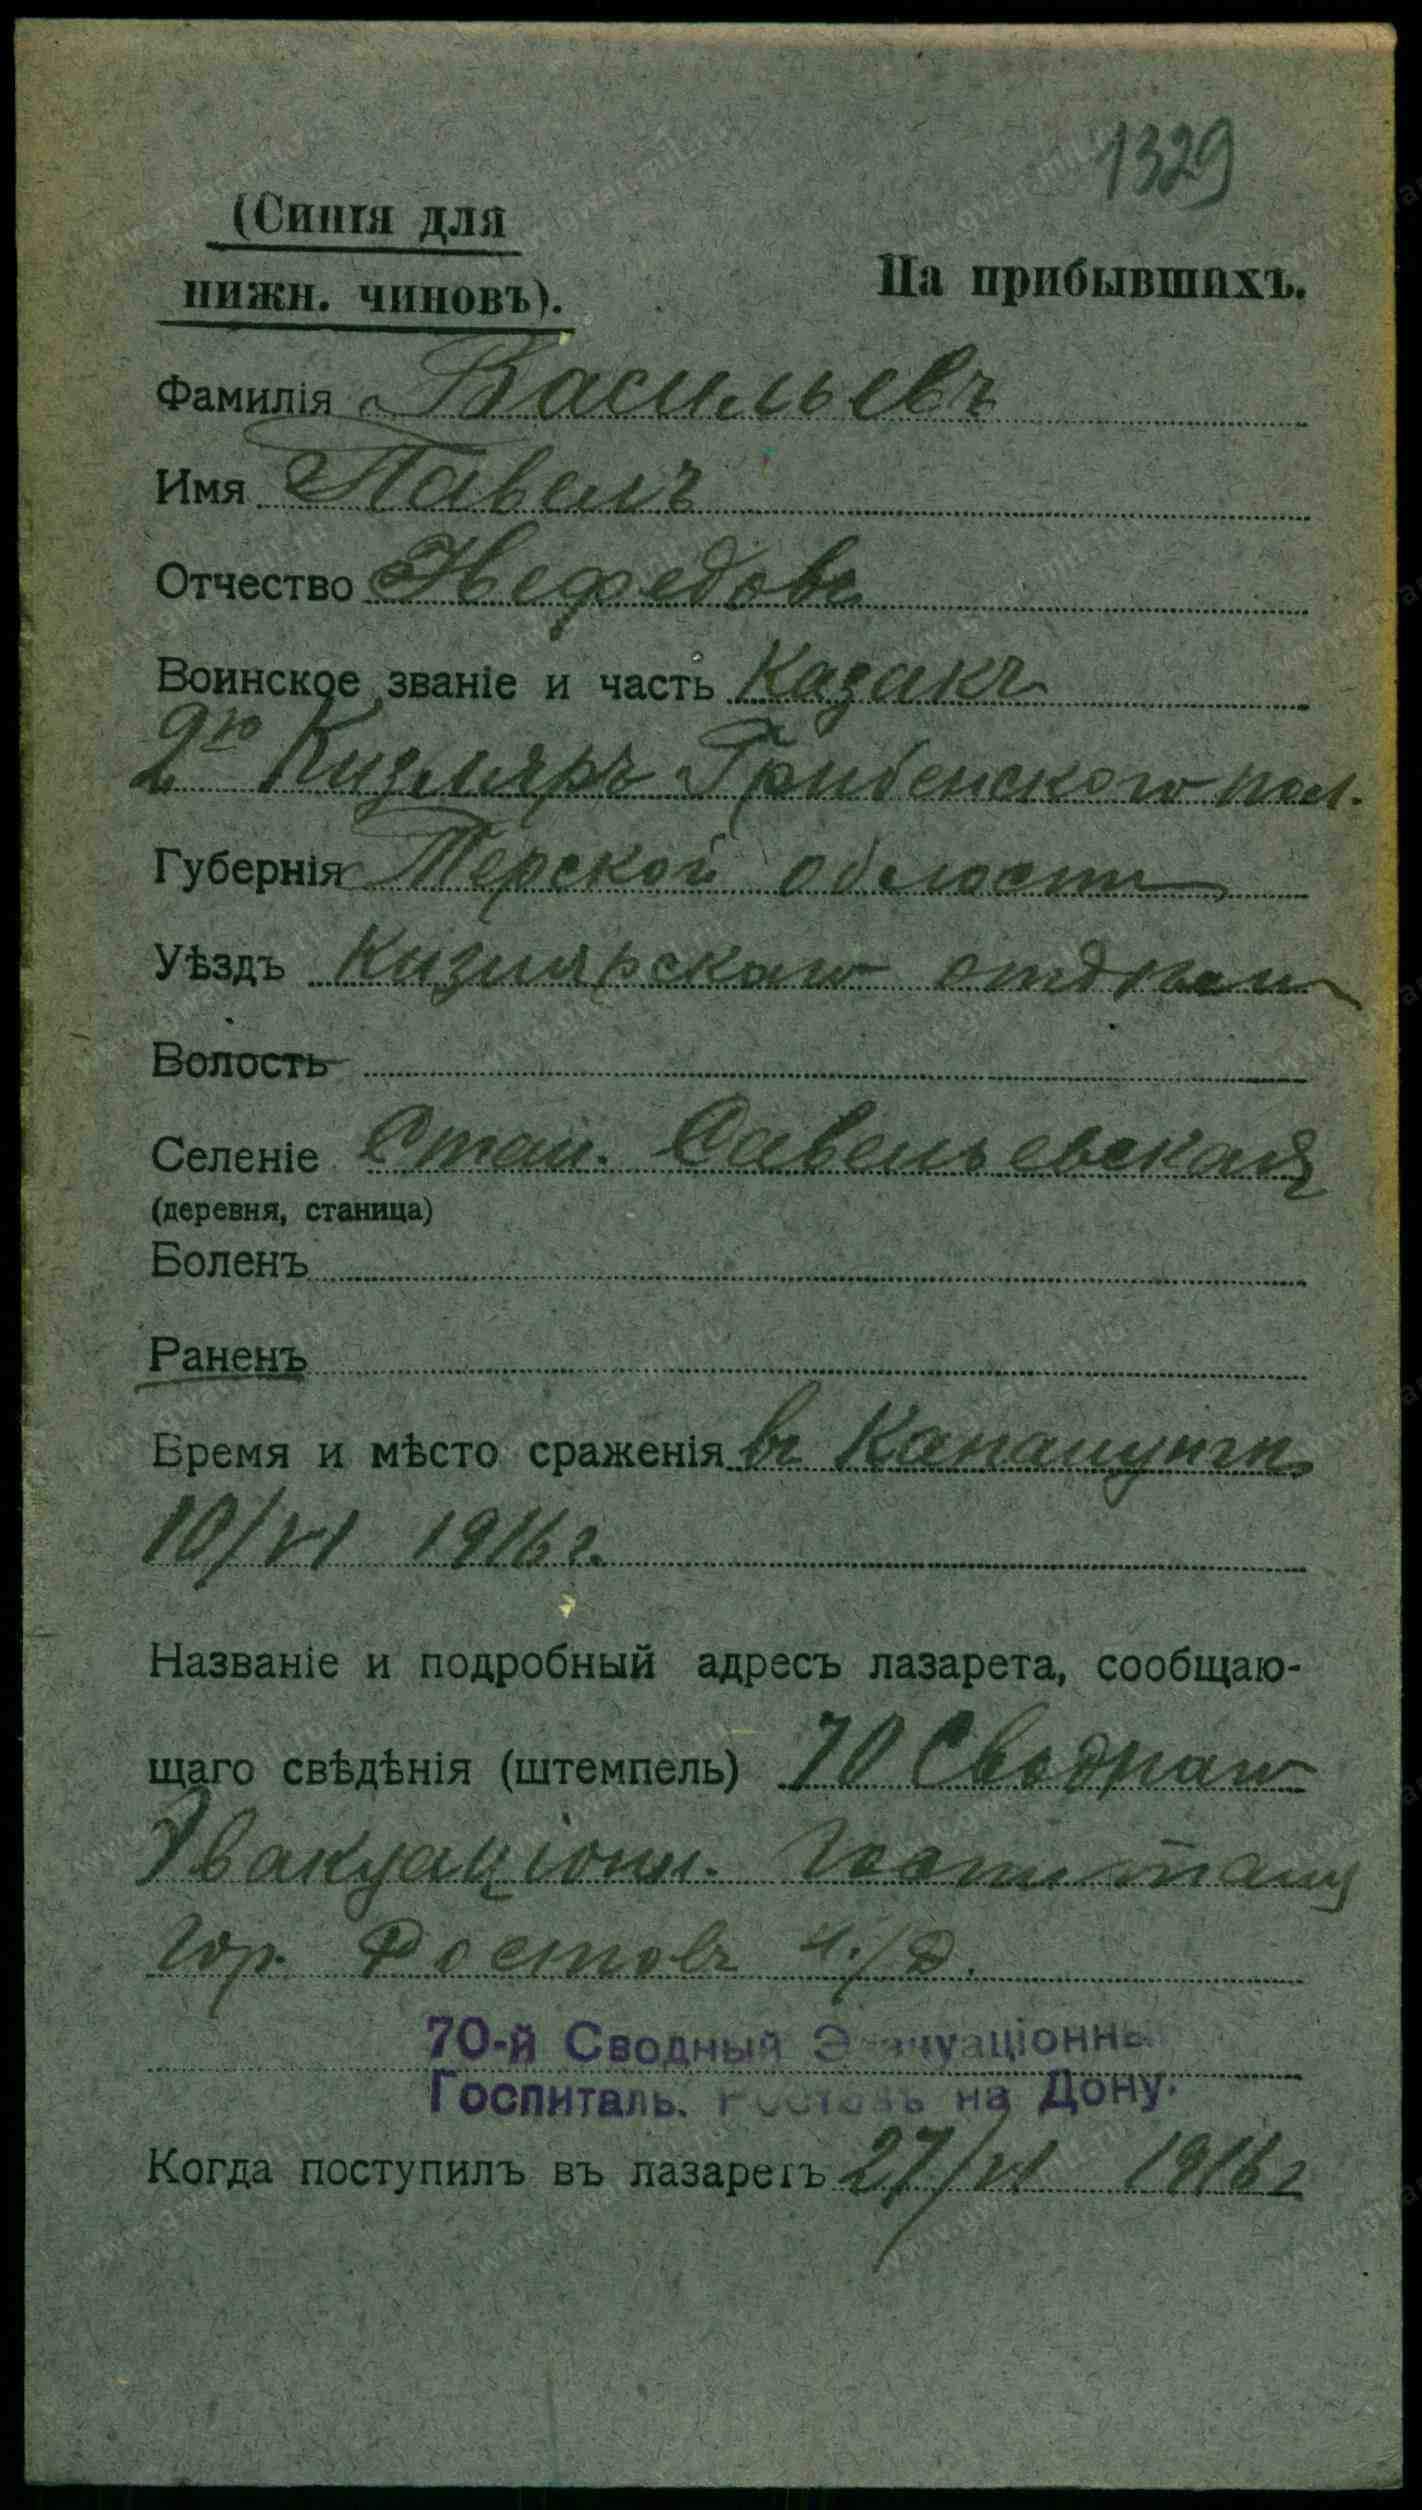 1329
(Синія для
нижн. чиновъ).
На прибывшихъ.
Фамилія Васильевъ
Имя Павелъ
Отчество Нефедовъ
Воинское званіе и часть Казакъ
2го Кизляръ Гребенского пол.
Губернія Терской области
Уѣздъ Кизлярскаго отдѣла
Волость
Селеніе Стан. Савельевская
(деревня, станица)
Боленъ
Раненъ
Время и мѣсто сраженія въ
10/VI 1916 г.
Названіе и подробный адресъ лазарета, сообщаю-
щаго свѣдѣнія (штемпель) 70 Своднаго
Эвакуаціонн. Госпиталя
гор. Ростовъ н./Д.
70-й Сводный Эвакуаціонный
Госпиталь. Ростовъ на Дону.
Когда поступилъ въ лазаретъ 27/VI 1916 г